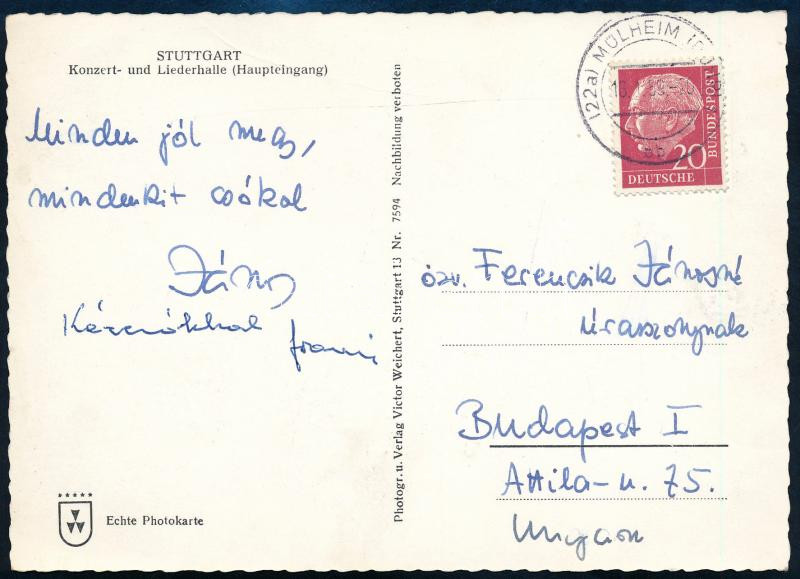 STUTTGART
Konzert- und Liederhalle (Haupteingang)
Minden jól megy,
mindenkit csókol
János
Kézcsókkal
Echte Photokarte
Photogr. u. Verlag Victor Weichert, Stuttgart 13 Nr. 7594 Nachbildung verboten
(22a) MÜLHEIM
20
DEUTSCHE
BUNDESPOST
özv. Ferencsik Jánosné
úrasszonynak
Budapest I
Attila-u. 75.
Ungarn